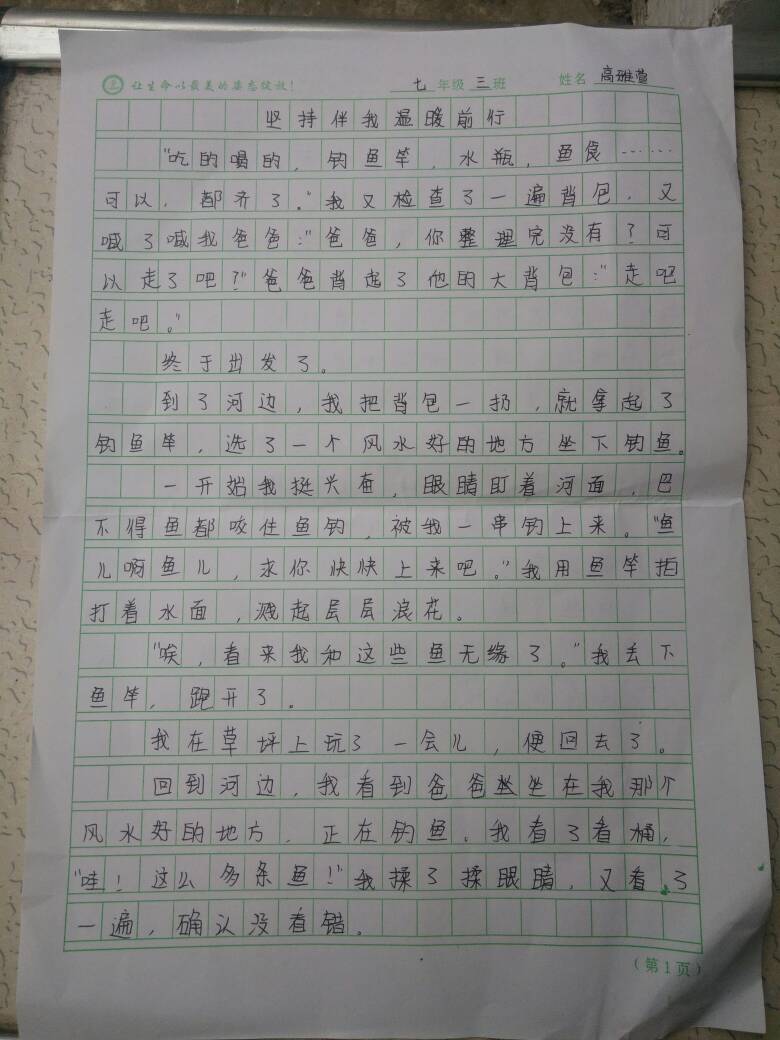 让生命以最美的姿态绽放! 七年级三班 姓名 高雅萱
坚持伴我温暖前行
"吃的喝的，钓鱼竿，水瓶，鱼食……
可以，都齐了。"我又检查了一遍背包，又
喊了喊我爸爸："爸爸，你整理完没有？可
以走了吧？"爸爸背起了他的大背包："走吧
走吧。"
终于出发了。
到了河边，我把背包一扔，就拿起了
钓鱼竿，选了一个风水好的地方坐下钓鱼。
一开始我挺兴奋，眼睛盯着河面，巴
不得鱼都咬住鱼钩，被我一串钓上来。"鱼
儿啊鱼儿，求你快快上来吧。"我用鱼竿拍
打着水面，溅起层层浪花。
"唉，看来我和这些鱼无缘了。"我丢下
鱼竿，跑开了。
我在草坪上玩了一会儿，便回去了。
回到河边，我看到爸爸坐在我那个
风水好的地方，正在钓鱼。我看了看桶，
"哇！这么多条鱼！"我揉了揉眼睛，又看了
一遍，确认没看错。
（第1页）